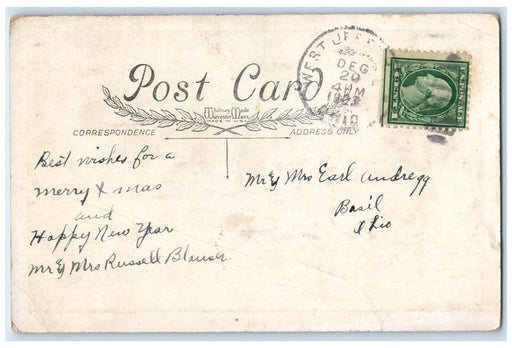 WEST JEFF
DEC
20
4 PM
Post Card
Whitney Made
Worcester Mass.
MADE IN U.S.A.
CORRESPONDENCE
ADDRESS ONLY
Best wishes for a
merry Xmas
and
Happy New Year
Mr & Mrs Russell Blauser
Mr & Mrs Earl Andregg
Basil
Ohio